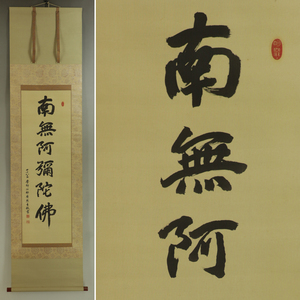 南無阿彌陀佛
南無阿